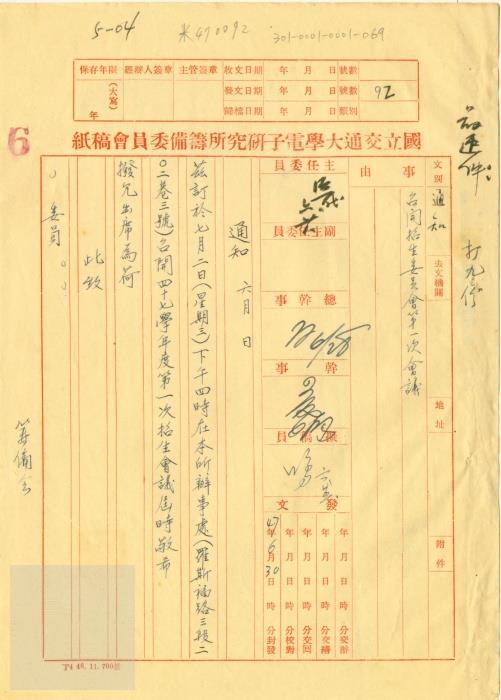 5-04
米470092
301-0001-0001-069
保存年限 經辦人簽章 主管簽章 收文日期 年 月 日 號數
(大寫) 發文日期 年 月 日 號數 92
年 歸檔日期 年 月 日 類別
6
國立交通大學電子研究所籌備委員會稿紙
速件
打九份
文別 通知
去文機關
地址
附件
事由
召開招生委員會第一次會議
主任委員
副主任委員
總幹事
6/28
幹事
擬稿員
發文
年 月 日 時 分交辦
年 月 日 時 分交繕
年 月 日 時 分交回
年 月 日 時 分校對
47年6月30日 時 分封發
通知 六月 日
茲訂於七月二日(星期三)下午四時在本所辦事處(羅斯福路三段二
〇二巷三號)召開四十七學年度第一次招生會議屆時敬希
撥冗出席為荷
此致
〇委員〇〇
籌備會
T4 46. 11. 700張